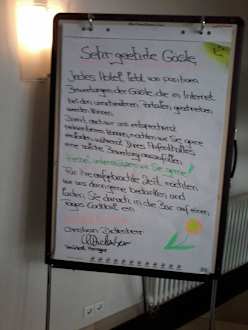 Sehr geehrte Gäste,
Jedes Hotel lebt von positiven
Bewertungen der Gäste, die im Internet
bei den verschiedenen Portalen geschrieben
werden können.
Damit auch wir uns entsprechend
können, möchten wir Sie gerne
während Ihres Aufenthaltes,
eine solche Bewertung auszufüllen.
Hierbei unterstützen wir Sie gerne!
Für Ihre aufgebrachte Zeit, möchten
wir uns dann gerne bedanken und
laden Sie danach in die Bar auf einen
Tages Cocktail ein.
Christian